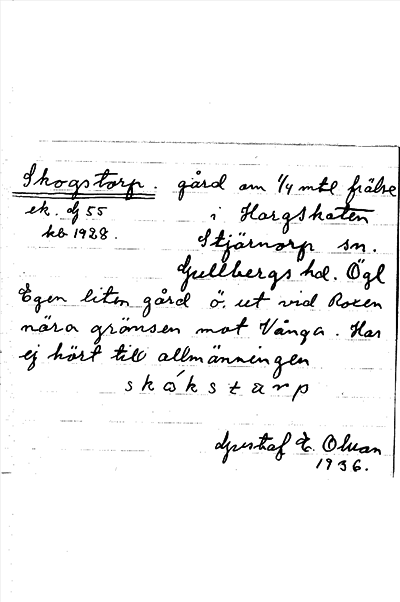 Skogstorp. gård om 1/4 mtl frälse
ek. dj 55 i Hargskaten
kb 1928. Stjärnorp sn.
Gullbergs hd. Ögl
Egen liten gård ö. ut vid Roxen
nära gränsen mot Vånga. Har
ej hört till allmänningen
skókstarp
Gustaf E. Olsan
1936.